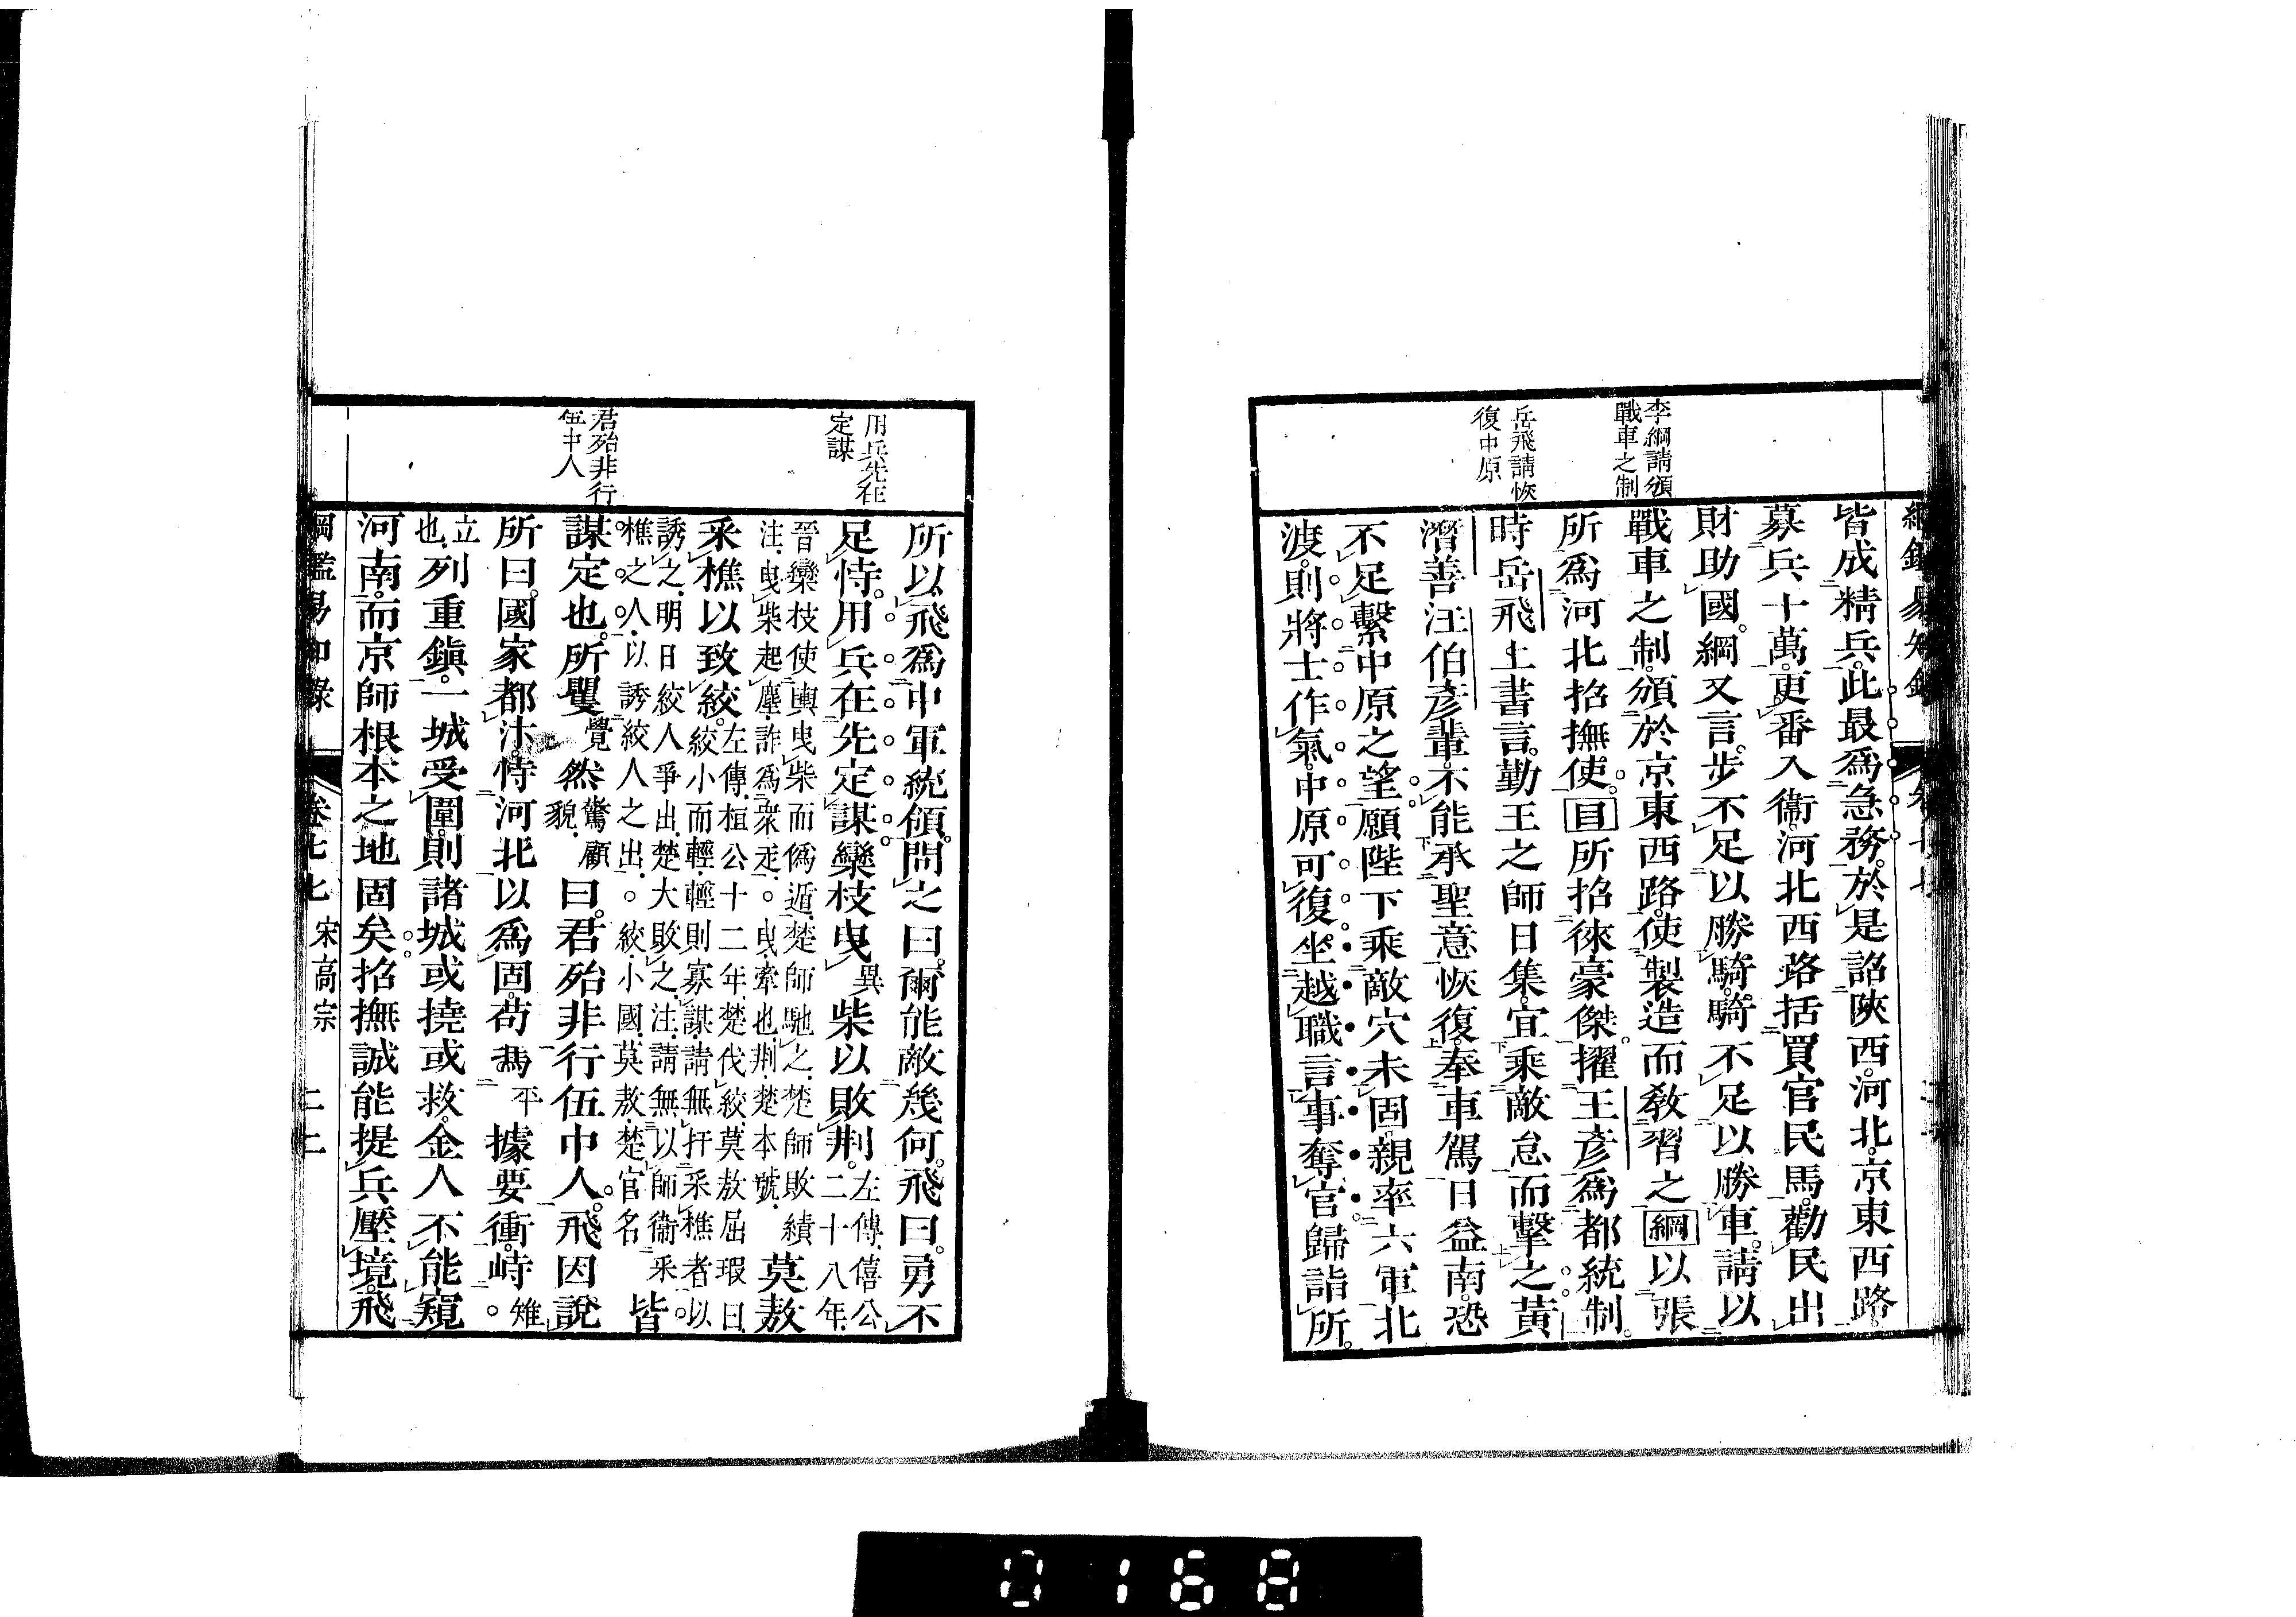 李綱請頒
戰車之制
岳飛請恢
復中原
皆成精兵。此最爲急務。於是詔陝西。河北。京東西路。
募兵十萬。更番入衞。河北西路括買官民馬。勸民出
財助國。綱又言。步不足以勝騎。騎不足以勝車。請以
戰車之制。頒於京東西路。使製造而敎習之綱以張
所爲河北招撫使。目所招徠豪傑。擢王彥爲都統制。
時岳飛上書言。勤王之師日集。宜乘敵怠而擊之黃
潛善汪伯彥輩。不能承聖意恢復。奉車駕日益南。恐
不足繫中原之望。願陛下乘敵穴未固。親率六軍北
渡。則將士作氣。中原可復。坐越職言事奪官歸詣所。
用兵先在
定謀
君殆非行
伍中人
所以飛爲中軍統領。問之曰。爾能敵幾何。飛曰。勇不
足恃。用兵在先定謀。欒枝曳異柴以敗荆。左傳。僖公
二十八年。
晉欒枝使輿曳柴而僞遁。楚師馳之。楚師敗績
注。曳柴起塵。詐爲衆走。○曳。牽也。荆。楚本號。莫敖
采樵以致絞。左傳。桓公十二年。楚伐絞。莫敖屈瑕曰。
絞小而輕。輕則寡謀。請無扞采樵者。以
誘之。明日絞人爭出。楚大敗之。注。請無以師衞采
樵之人。以誘絞人之出。○絞。小國。莫敖。楚官名皆
謀定也。所矍覺然驚顧
貌。曰。君殆非行伍中人。飛因說
所曰。國家都汴。恃河北以爲固。苟馮平據要衝。峙雉。
立
也。列重鎭。一城受圍。則諸城或撓或救。金人不能窺
河南。而京師根本之地固矣。招撫誠能提兵壓境。飛
綱鑑易知錄 卷七七 宋高宗
0168